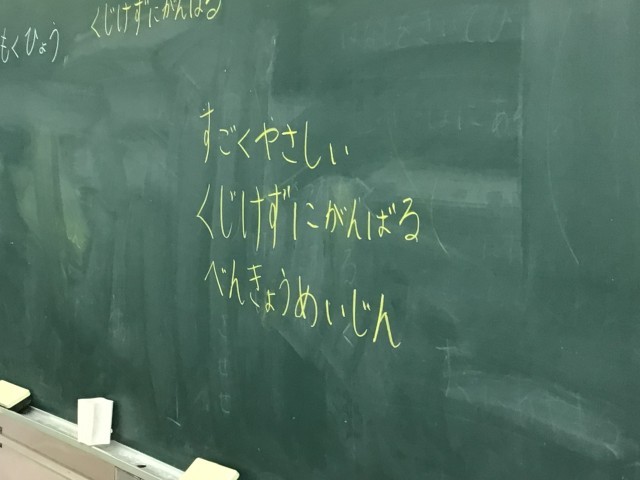 もくひょう　くじけずにがんばる
すごくやさしい
くじけずにがんばる
べんきょうめいじん